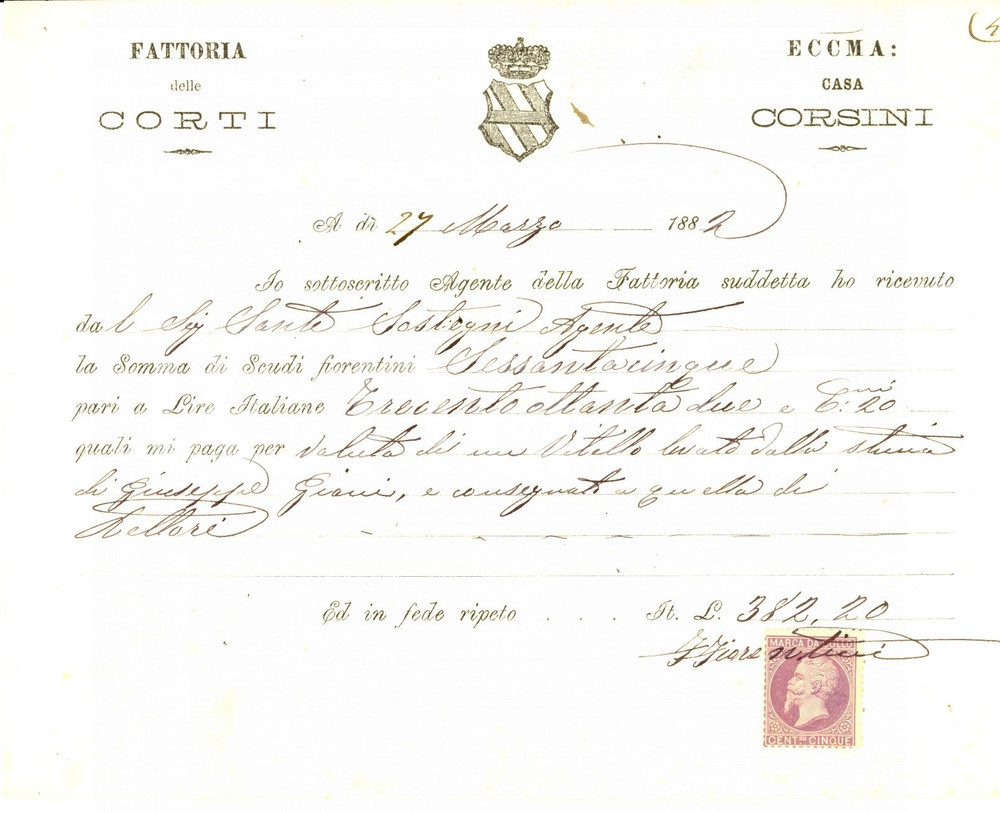 4
FATTORIA
delle
CORTI
ECCMA:
CASA
CORSINI
A dì 27 Marzo 1882
Io sottoscritto Agente della Fattoria suddetta ho ricevuto
dal Sig Sante Sostegni Agente
la Somma di Scudi fiorentini Sessantacinque
pari a Lire Italiane Trecentottanta due e C:mi 20
quali mi paga per valuta di un Vitello levato dalla stima
di Giuseppe Giani, e consegnato a quella di
Ed in fede ripeto . . . . It. L. 382,20
Fiorentini
MARCA DA BOLLO
CENT.MI CINQUE